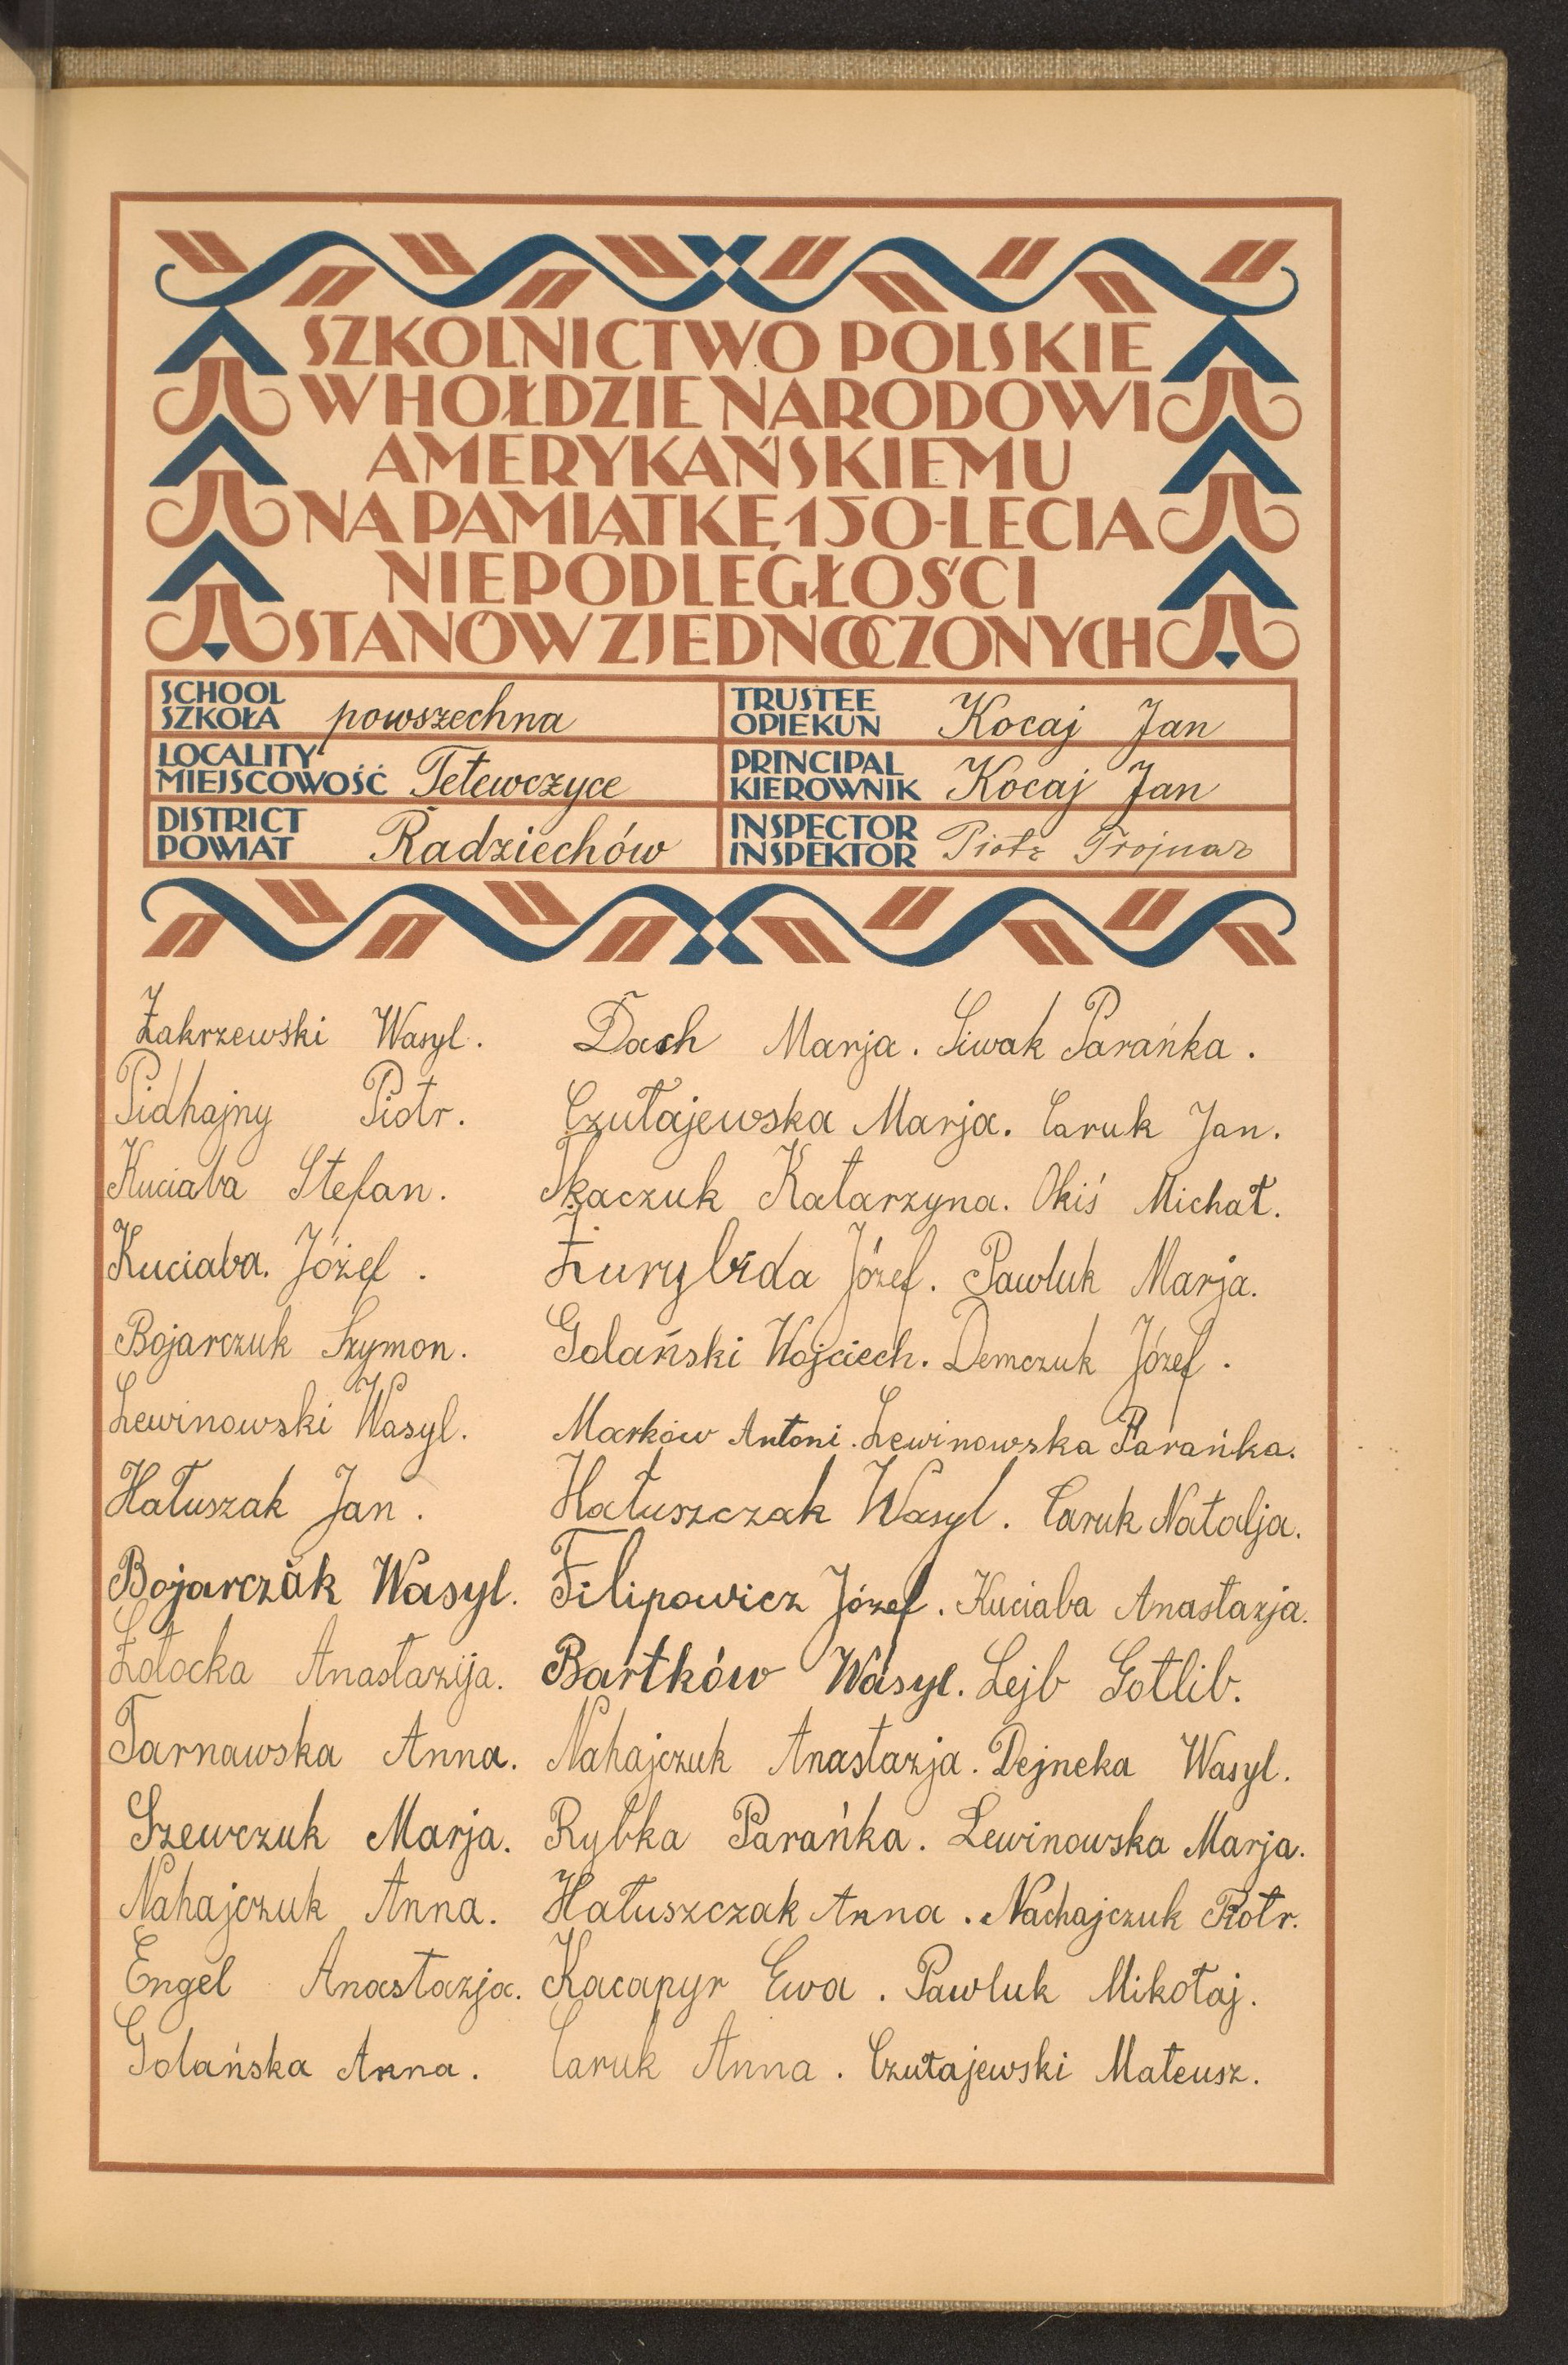 SZKOLNICTWO POLSKIE
W HOŁDZIE NARODOWI
AMERYKAŃSKIEMU
NA PAMIĄTKĘ 150-LECIA
NIEPODLEGŁOŚCI
STANÓW ZJEDNOCZONYCH
SCHOOL
SZKOŁA powszechna
TRUSTEE
OPIEKUN Kocaj Jan
LOCALITY
MIEJSCOWOŚĆ Tetewczyce
PRINCIPAL
KIEROWNIK Kocaj Jan
DISTRICT
POWIAT Radziechów
INSPECTOR
INSPEKTOR Piotr Trojnar
Zakrzewski Wasyl. Dach Marja. Siwak Parańka.
Pidhajny Piotr. Czułajewska Marja. Caruk Jan.
Kuciaba Stefan. Tkaczuk Katarzyna. Okiś Michał.
Kuciaba. Józef. Żurybida Józef. Pawluk Marja.
Bojarczuk Szymon. Golański Wojciech. Demczuk Józef.
Lewinowski Wasyl. Marków Antoni. Lewinowska Parańka.
Hałuszak Jan. Hałuszczak Wasyl. Caruk Natalja.
Bojarczuk Wasyl. Filipowicz Józef. Kuciaba Anastazja.
Anastazija. Bartków Wasyl. Lejb Gotlib.
Tarnawska Anna. Nahajczuk Anastazja. Dejneka Wasyl.
Szewczuk Marja. Rybka Parańka. Lewinowska Marja.
Nahajczuk Anna. Hałuszczak Anna. Nachajczuk Piotr.
Engel Anastazja. Kacapyr Ewa. Pawluk Mikołaj.
Golańska Anna. Caruk Anna. Czułajewski Mateusz.